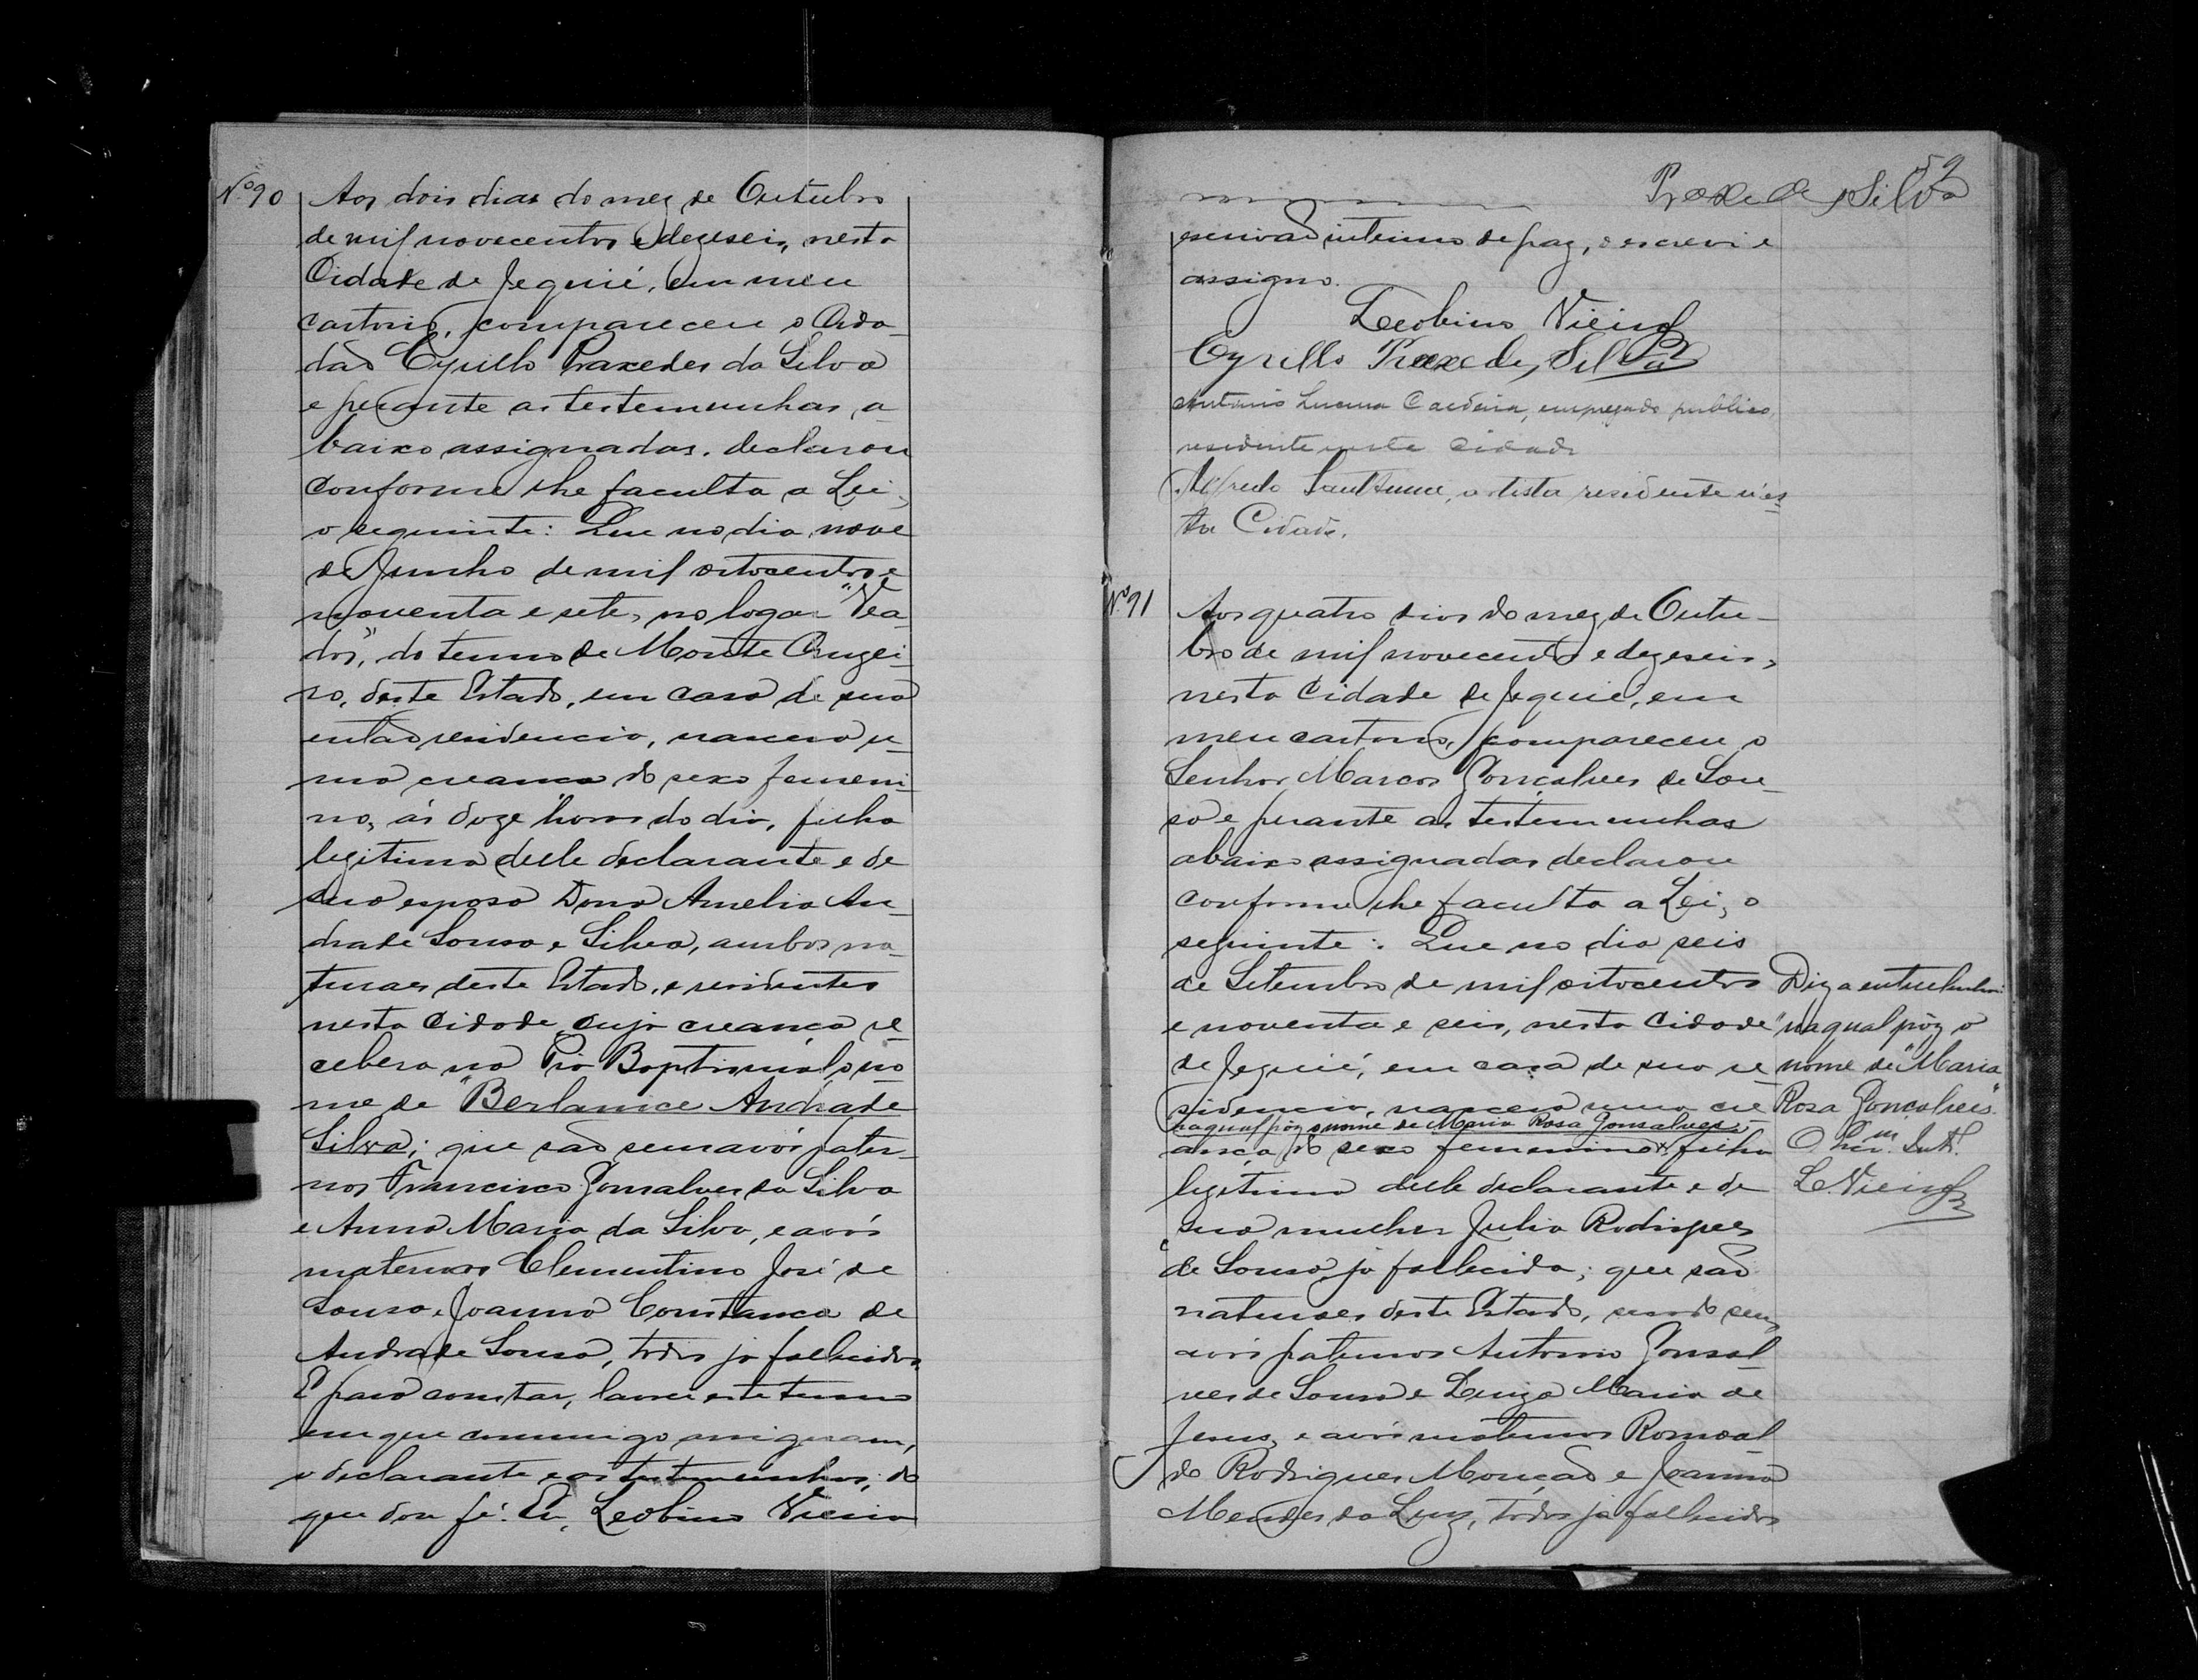 Nº 90
Aos dois dias do mez de Outubro
de mil novecentos e dezeseis, nesta
Cidade de Jequié, em meu
cartorio, compareceu o Cida-
dão Cyrillo Praxedes da Silva
e perante as testemunhas, a-
baixo assignadas, declarou
conforme lhe faculta a Lei,
o seguinte: Que no dia nove
de Junho de mil oitocentos e
noventa e sete, no logar "Vea-
dos", do termo de Monte Cruzei-
ro, deste Estado, em casa de sua
então residencia, nasceu u-
ma creança do sexo femeni-
no, ás doze horas do dia, filha
legitima delle declarante e de
sua esposa Dona Amelia An-
drade Sousa e Silva, ambos na-
turaes deste Estado, e residentes
nesta Cidade, cuja creança re-
cebera na Pia Baptismal o no-
me de "Berlanice Andrade
Silva; que são seus avós pater-
nos Francisco Gonsalves da Silva
e Anna Maria da Silva, e avós
maternos Clementino José de
Sousa e Joanna Constança de
Andrade Sousa, todos já fallecidos.
E para constar, lavrei este termo
em que commigo assignam,
o declarante e as testemunhas, do
que dou fé. Eu, Leobino Vieira
59
Praxedes Silva
escrivão interino de paz, o escrevi e
assigno.
Leobino Vieira
Cyrillo Praxedes Silva
Antonio Lucena Caldeira, empregado publico,
residente nesta Cidade
Alfredo Sant'Anna, artista residente n'es-
ta Cidade.
Nº 91
Aos quatro dias do mez de Outu-
bro de mil novecentos e dezeseis,
nesta Cidade de Jequié, em
meu cartorio, compareceu o
Senhor Marcos Gonçalves de Sou-
sa e perante as testemunhas
abaixo assignadas declarou
conforme lhe faculta a Lei, o
seguinte: Que no dia seis
de Setembro de mil oitocentos
e noventa e seis, nesta Cidade
de Jequié, em casa de sua re-
sidencia, nasceu uma cre
na qual pôz o nome de Maria Rosa Gonsalves,
ança do sexo femenino, filha
legitima delle declarante e de
sua mulher Julia Rodrigues
de Sousa, já fallecida; que são
naturaes deste Estado, sendo seus
avós paternos Antonio Gonsal-
ves de Sousa e Luiza Maria de
Jesus, e avós maternos Romoal-
do Rodrigues Monção e Joanna
Mendes da Luz, todos já fallecidos
Diz a entrelinha:
"na qual pôz o
nome de "Maria
Rosa Gonçalves".
O
L. Vieira